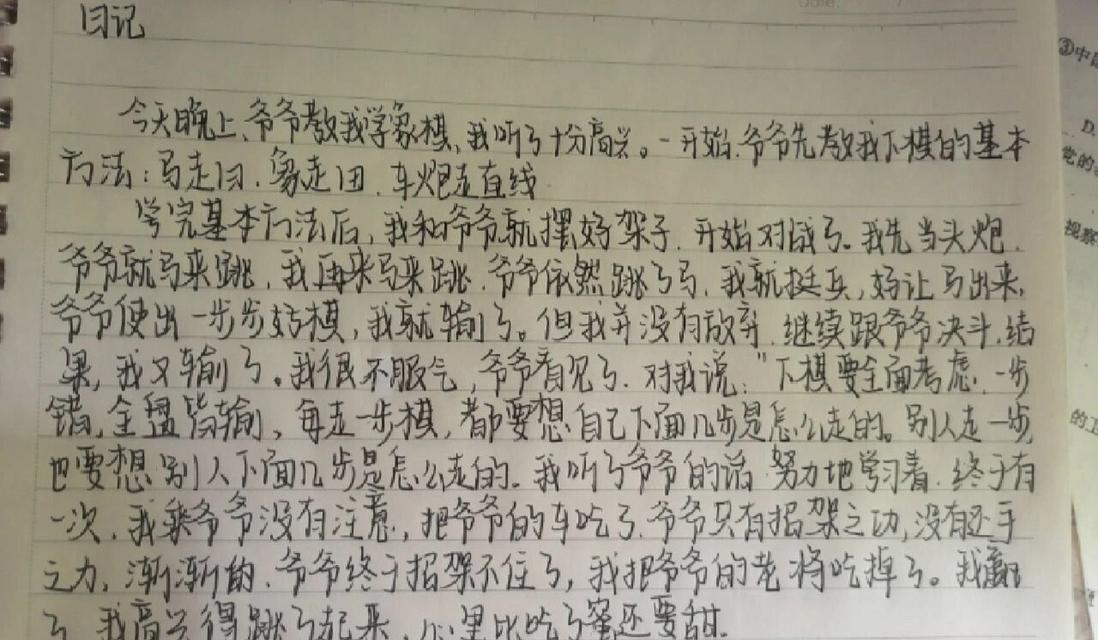 日记
今天晚上、爷爷教我学象棋、我听了十分高兴。一开始、爷爷先教我下棋的基本
方法：马走日、象走田、车炮走直线
学完基本方法后，我和爷爷就摆好架子、开始对战了。我先当头炮、
爷爷就马来跳，我再来马来跳、爷爷依然跳了马、我就挺兵，好让马出来、
爷爷使出一步步好棋，我就输了。但我并没有放弃、继续跟爷爷决斗、结
果，我又输了。我很不服气，爷爷看见了、对我说："下棋要全面考虑、一步
错，全盘皆输，每走一步棋，都要想自己下面几步是怎么走的。别人走一步
也要想别人下面几步是怎么走的。我听了爷爷的话 努力地学习着、终于有
一次、我乘爷爷没有注意，把爷爷的车吃了、爷爷只有招架之功，没有还手
之力，渐渐的、爷爷终于招架不住了，我把爷爷的老将吃掉了。我赢
了、我高兴得跳了起来，心里比吃了蜜还要甜.
Date:
③中
D.
党的
视察
的工